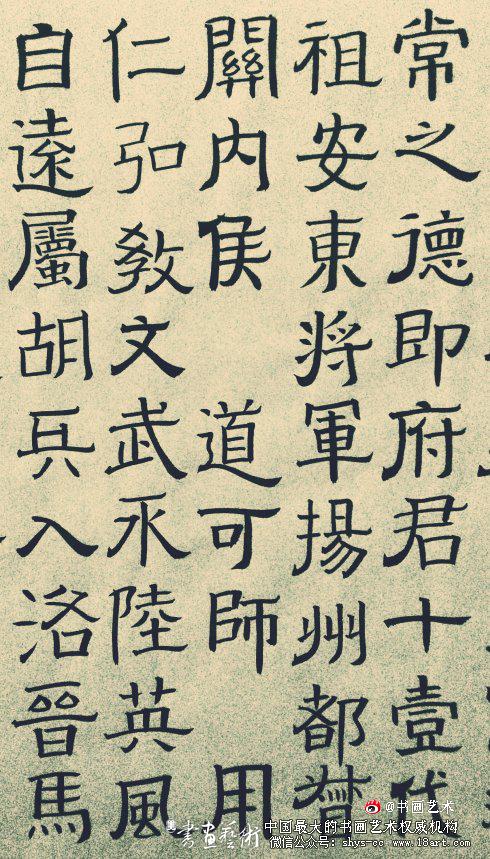 常之德即府君十壹代
祖安東將軍揚州都督
關内侯 道可師 用
仁弘教文武永陸英風
自遠屬胡兵入洛晉馬
書畫藝術
@书画艺术
中国最大的书画艺术权威机构
微信公众号: shys-cc www.18art.com